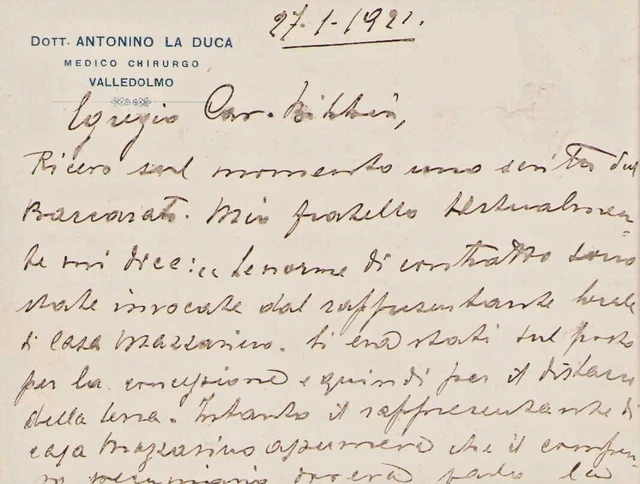 27-1-1921.
DOTT. ANTONINO LA DUCA
MEDICO CHIRURGO
VALLEDOLMO
Egregio Cav.
Ricevo sul momento uno scritto dal
Baccarato. Mio fratello testualmen-
te mi dice: "le norme di contratto sono
state invocate dal rappresentante locale
di casa Mazzarino. Si era stati sul posto
per la concessione e quindi per il distacco
della terra. Intanto il rappresentante di
casa Mazzarino che il
dovrà la